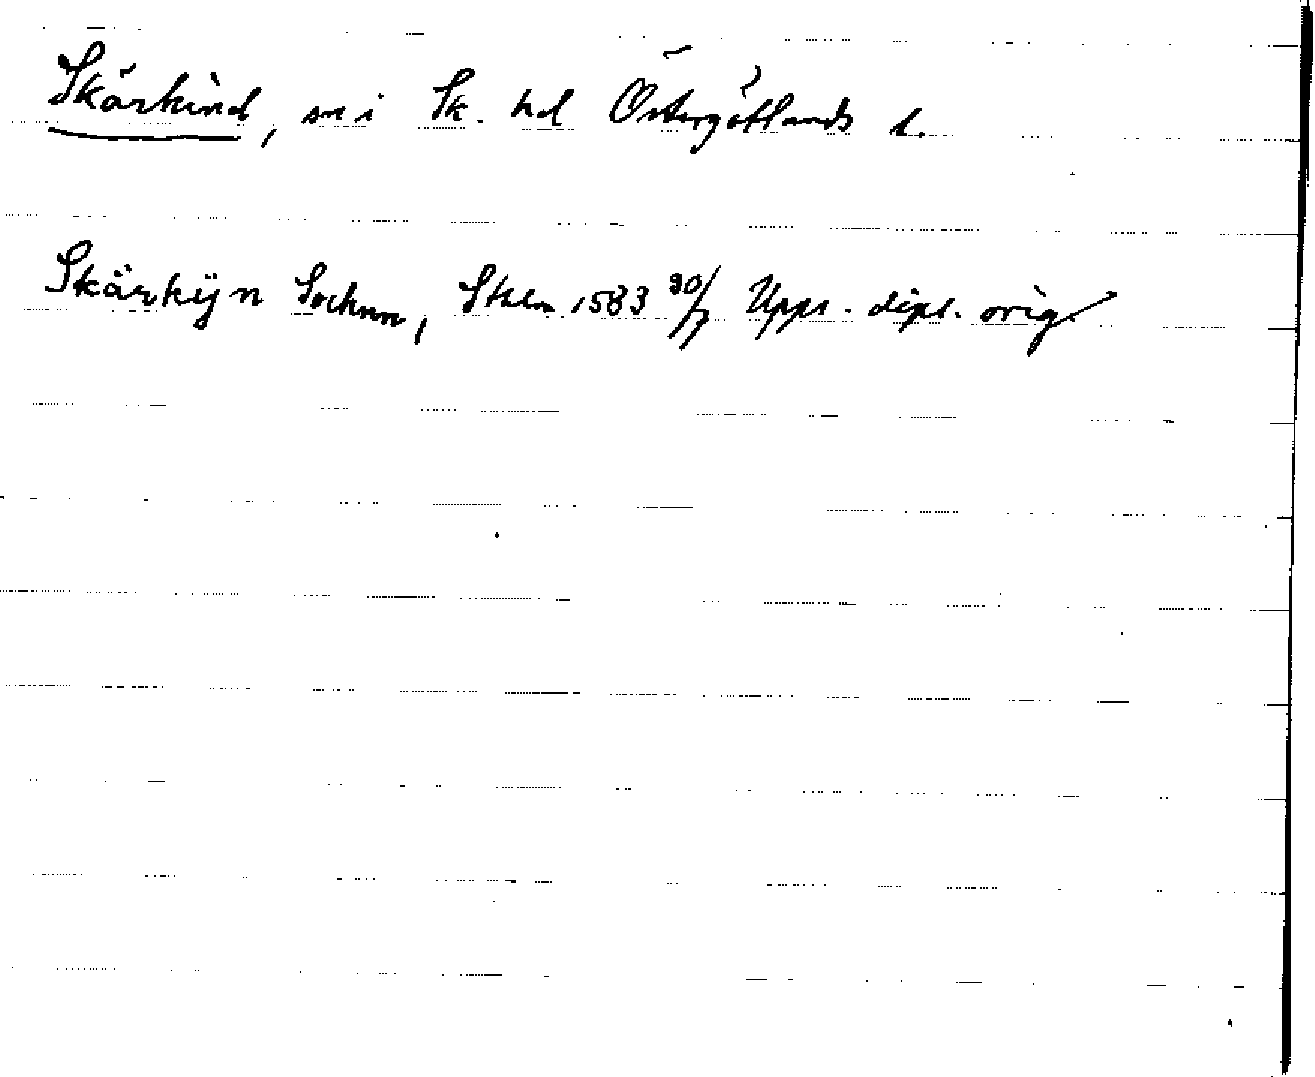 Skärkind, sn i Sk. hd Östergötlands l.
Skärkijn Sochnn, Sthlm 1583 30/7 Upps. dipl. orig.